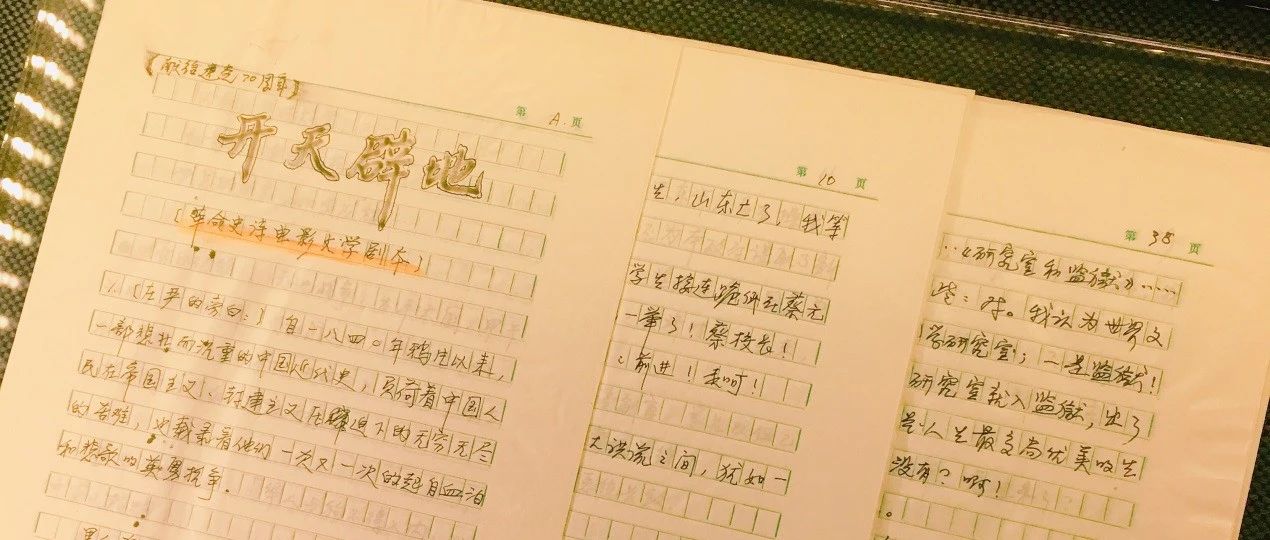 【献给建党70周年】
第 A. 页
开天辟地
〔革命史诗电影文学剧本〕
1.〔庄严的旁白:〕自一八四〇年鸦片以来,
一部悲壮而沉重的中国近代史,负荷着中国人
民在帝国主义、封建主义压榨迫下的无穷无尽
的苦难,也载录着他们一次又一次的起自血泊
和悲歌的英勇抗争。
第 10 页
先,山东亡了,我等
学生接连跪俯在蔡元
一举了!蔡校长!
前进!去呵!
大洪流之间,犹如一
第 38 页
…《研究室和监狱》……
对。我认为世界文
学研究室;一是监狱!
研究室就入监狱,出了
是人生最高尚优美的生
没有?啊!
。